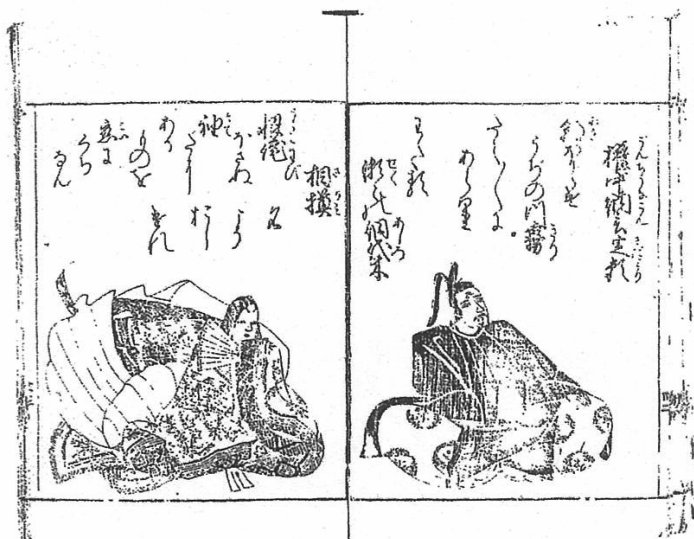 権中納言定頼
朝ぼらけ
うぢの川霧
たえ〲に
あらはれ
わたる
瀬々の網代木
相模
恨侘
ほさぬ
袖
だに
ある
ものを
恋に
くち
なん
名
こそ
おし
けれ